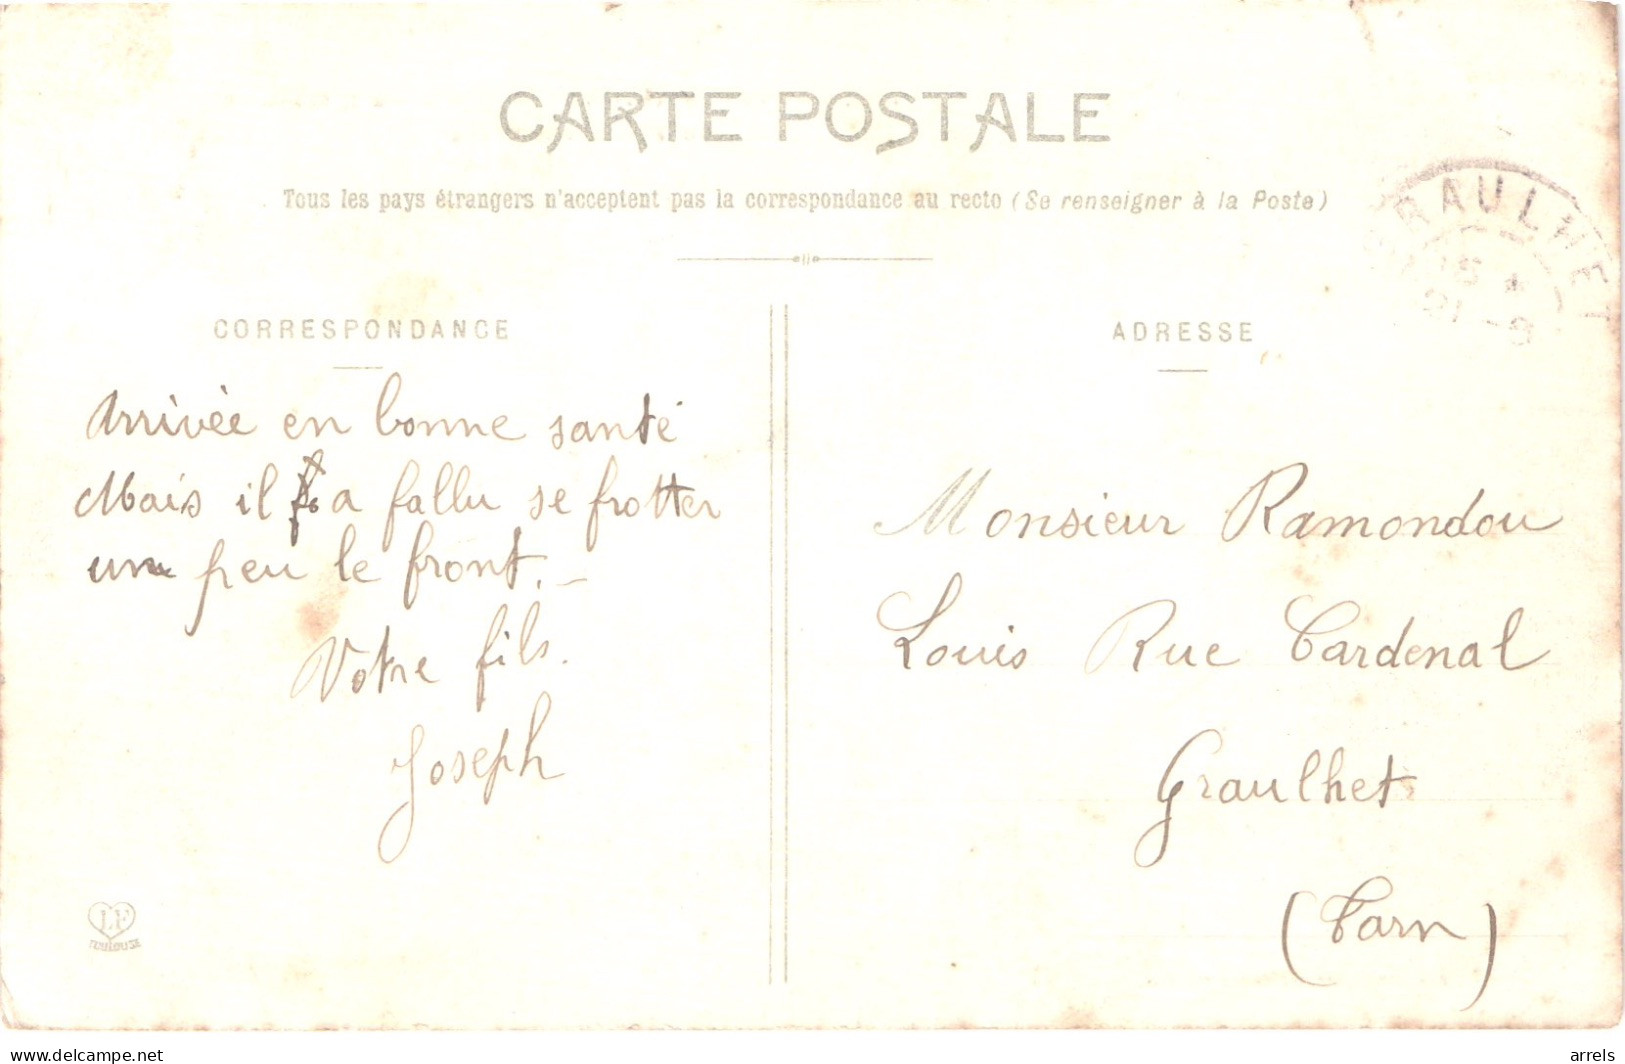 CARTE POSTALE
Tous les pays étrangers n'acceptent pas la correspondance au recto (Se renseigner à la Poste)
GRAULHET
CORRESPONDANCE
Arrivée en bonne santé
Mais il a fallu se frotter
un peu le front. —
Votre fils.
Joseph
LF
TOULOUSE
ADRESSE
Monsieur Ramondou
Louis Rue Cardenal
Graulhet
(Tarn)
delcampe.net
arrels